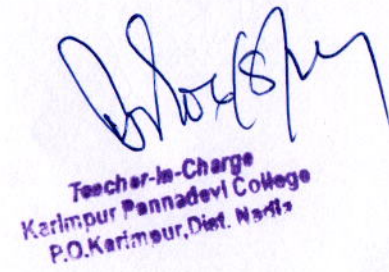 Teacher-in-Charge
Karimpur Pannadevi College
P.O.Karimpur, Dist. Nadia